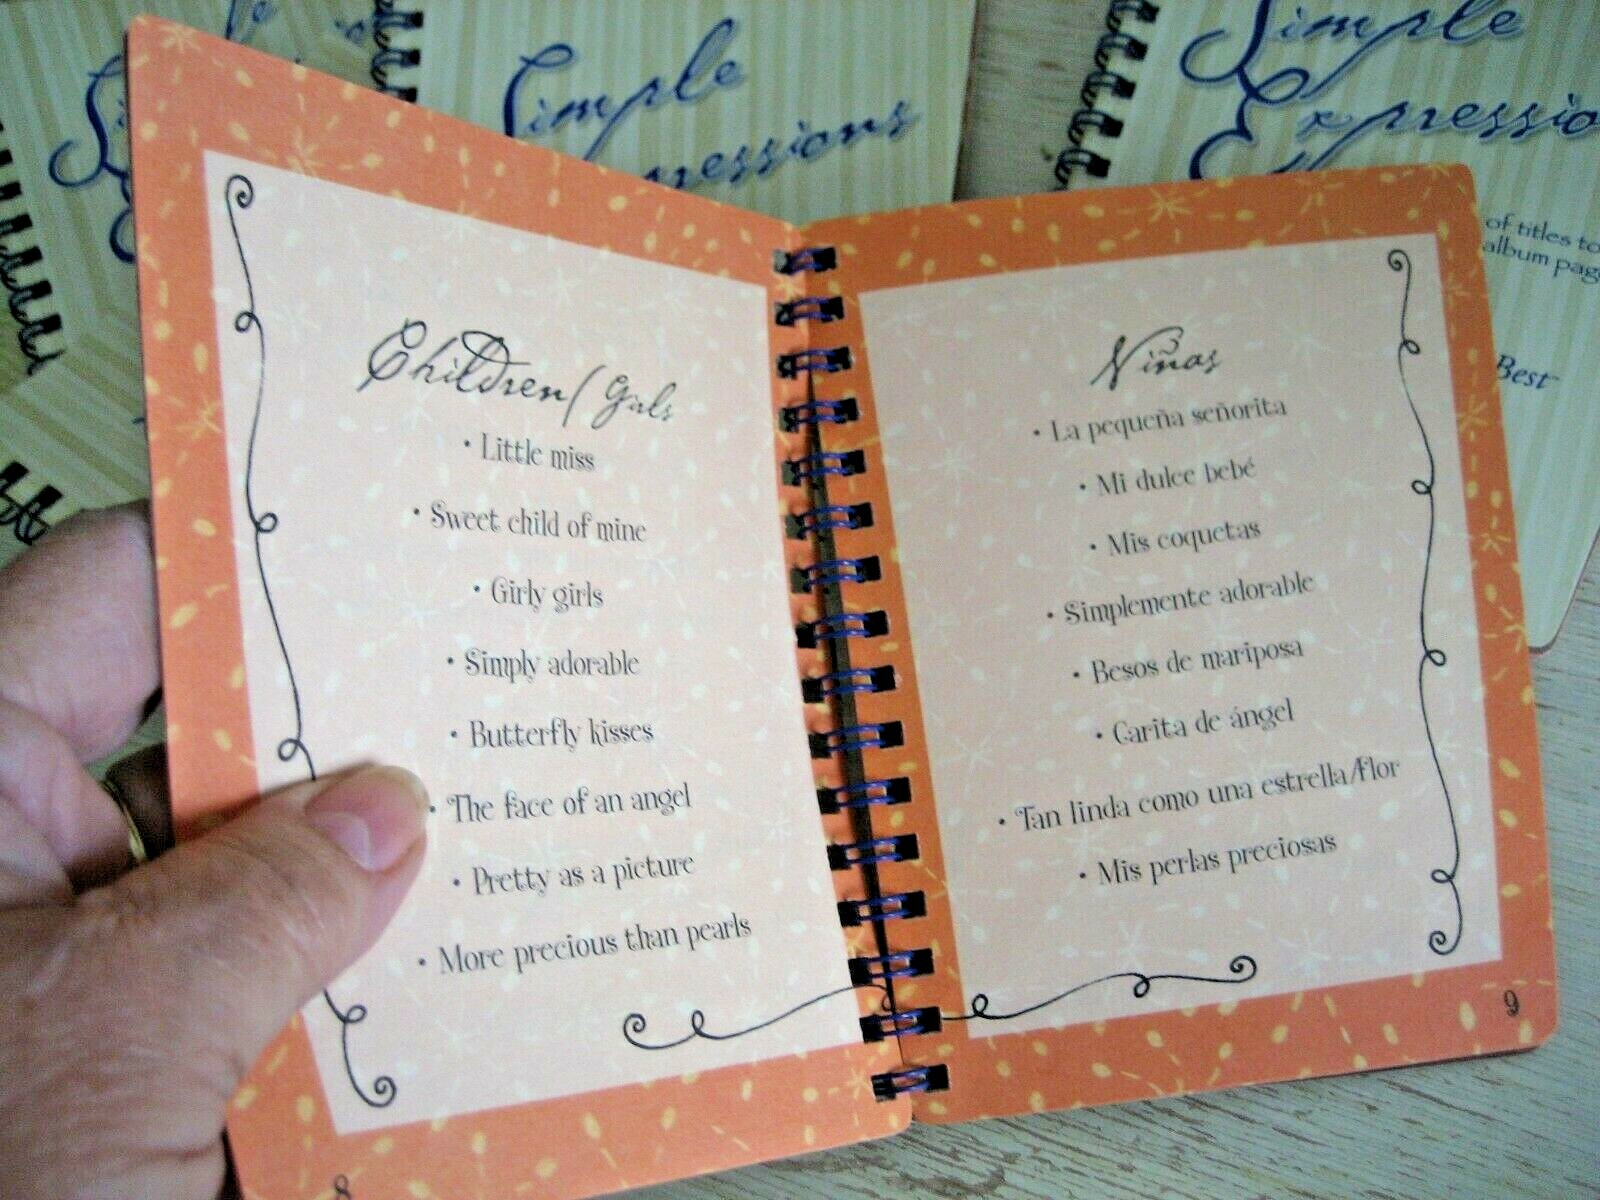 Simple
Expressions
Simple
Expressio
of titles to
album pag
Best
Children/Girls
• Little miss
• Sweet child of mine
• Girly girls
• Simply adorable
• Butterfly kisses
• The face of an angel
• Pretty as a picture
• More precious than pearls
8
Niñas
• La pequeña señorita
• Mi dulce bebé
• Mis coquetas
• Simplemente adorable
• Besos de mariposa
• Carita de ángel
• Tan linda como una estrella/flor
• Mis perlas preciosas
9